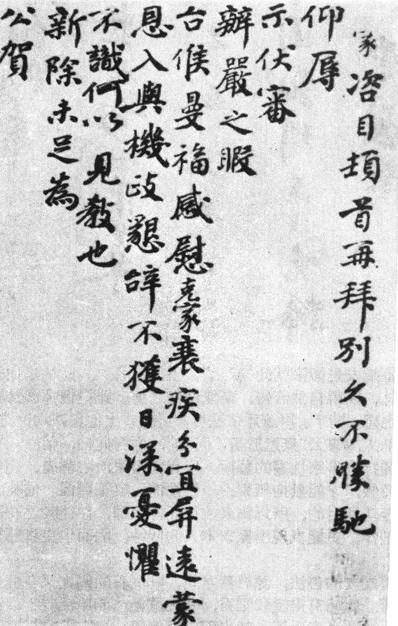 家咨目頓首再拜別久不勝馳
仰辱
示伏審
辦嚴之暇
台候曼福感慰克家衰疾分宜屏遠蒙
恩入與機政懇辝不獲日深憂懼
不識何以見教也
新除未足為
公賀